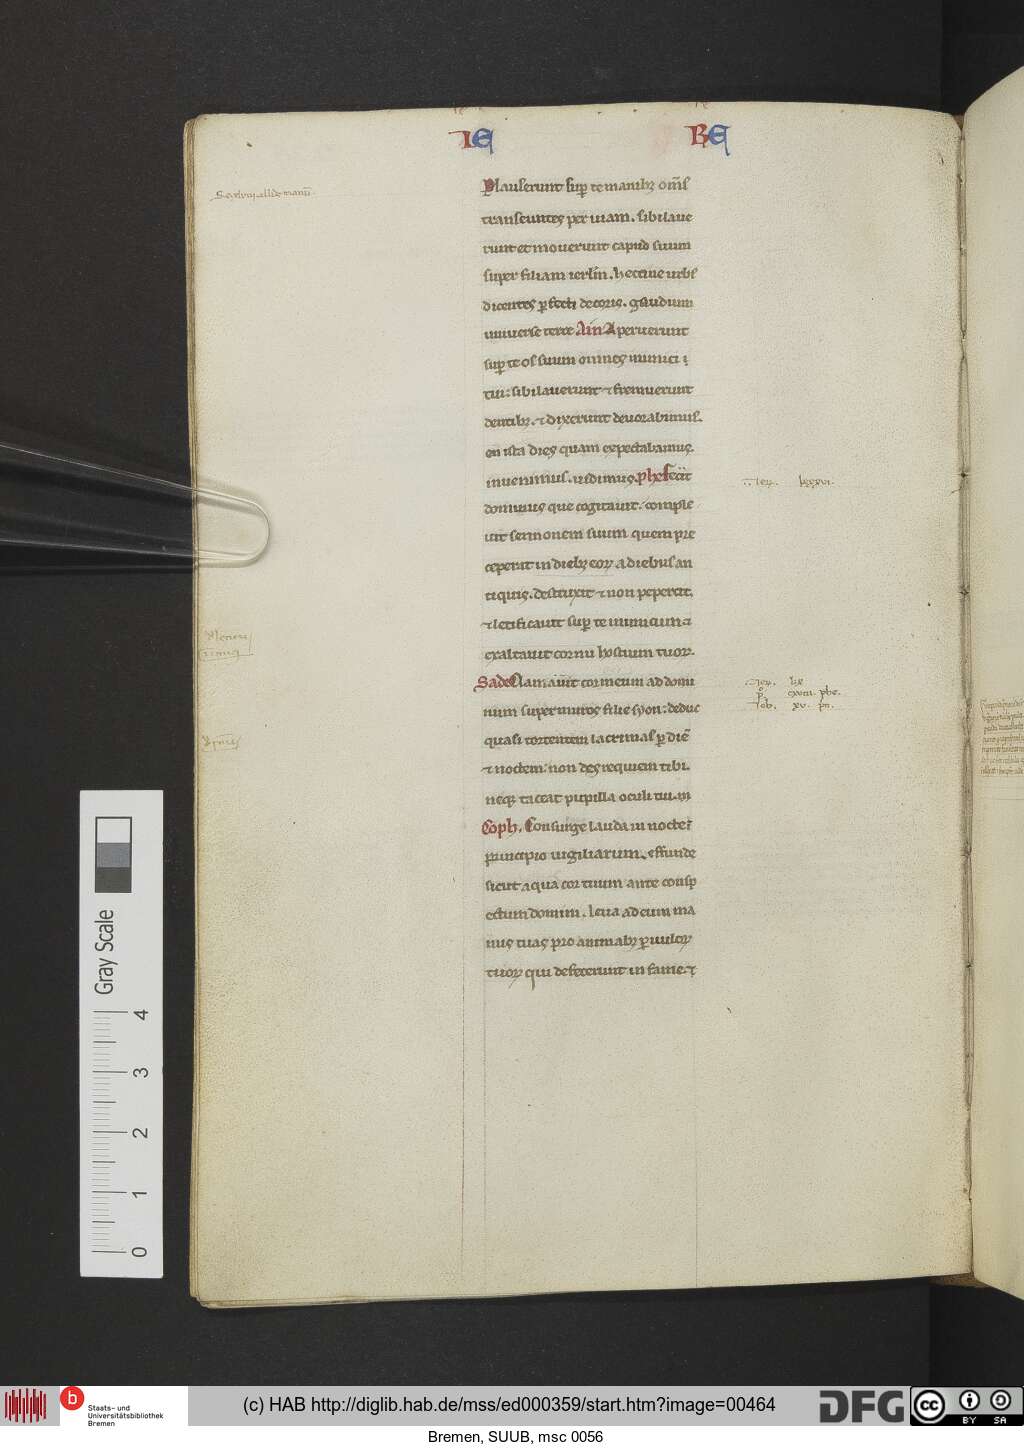 IE RE
Plauserunt sup̄ te manibꝫ om̄s
transeuntes per uiam. sibilaue
runt et mouerunt capud suum
super filiam ierlm̄. heccine urbs
dicentes ꝑfecti decoris. gaudium
uniuerse terre Ain Aperuerunt
sup̄ te os suum omnes inimici
tui: sibilauerunt ⁊ fremuerunt
dentibꝫ. ⁊ dixerunt deuorabimus.
en ista dies quam expectabamus.
inuenimus. uidimus. Phe fecit
dominus que cogitauit. comple
uit sermonem suum quem pre
ceperat in diebꝫ eoꝝ a diebus an
tiquis. destruxit ⁊ non pepercit.
⁊ letificauit sup̄ te inimicum ⁊
exaltauit cornu hostium tuoꝝ.
Sade Clamauit cor meum ad domi
num super muros filie syon: deduc
quasi torrentem lacrimas ꝑ diē
⁊ noctem: non des requiem tibi.
neqꝫ taceat pupilla oculi tui.
Coph. Consurge lauda in nocte ī
principio uigiliarum. effunde
sicut aqua cor tuum ante consp
ectum domini. leua ad eum ma
nus tuas pro animabꝫ ꝑuuloꝝ
tuoꝝ qui defecerunt in fame. ⁊
Gray Scale
4
3
2
1
0
Staats- und
Universitätsbibliothek
Bremen
(c) HAB http://diglib.hab.de/mss/ed000359/start.htm?image=00464
DFG
cc BY SA
Bremen, SUUB, msc 0056